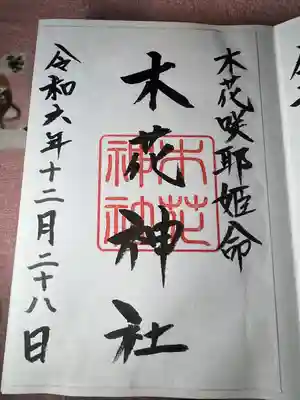 木花咲耶姫命
木花神社
令和六年十二月二十八日